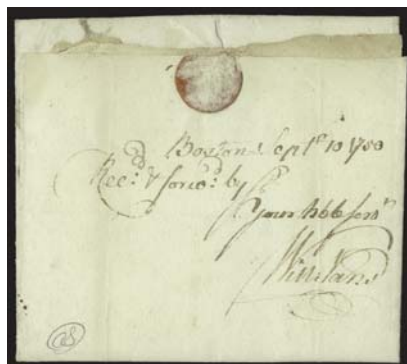 Boston Septr. 10 1780
Recd. & forwd. by Sr.
Your hble servt.